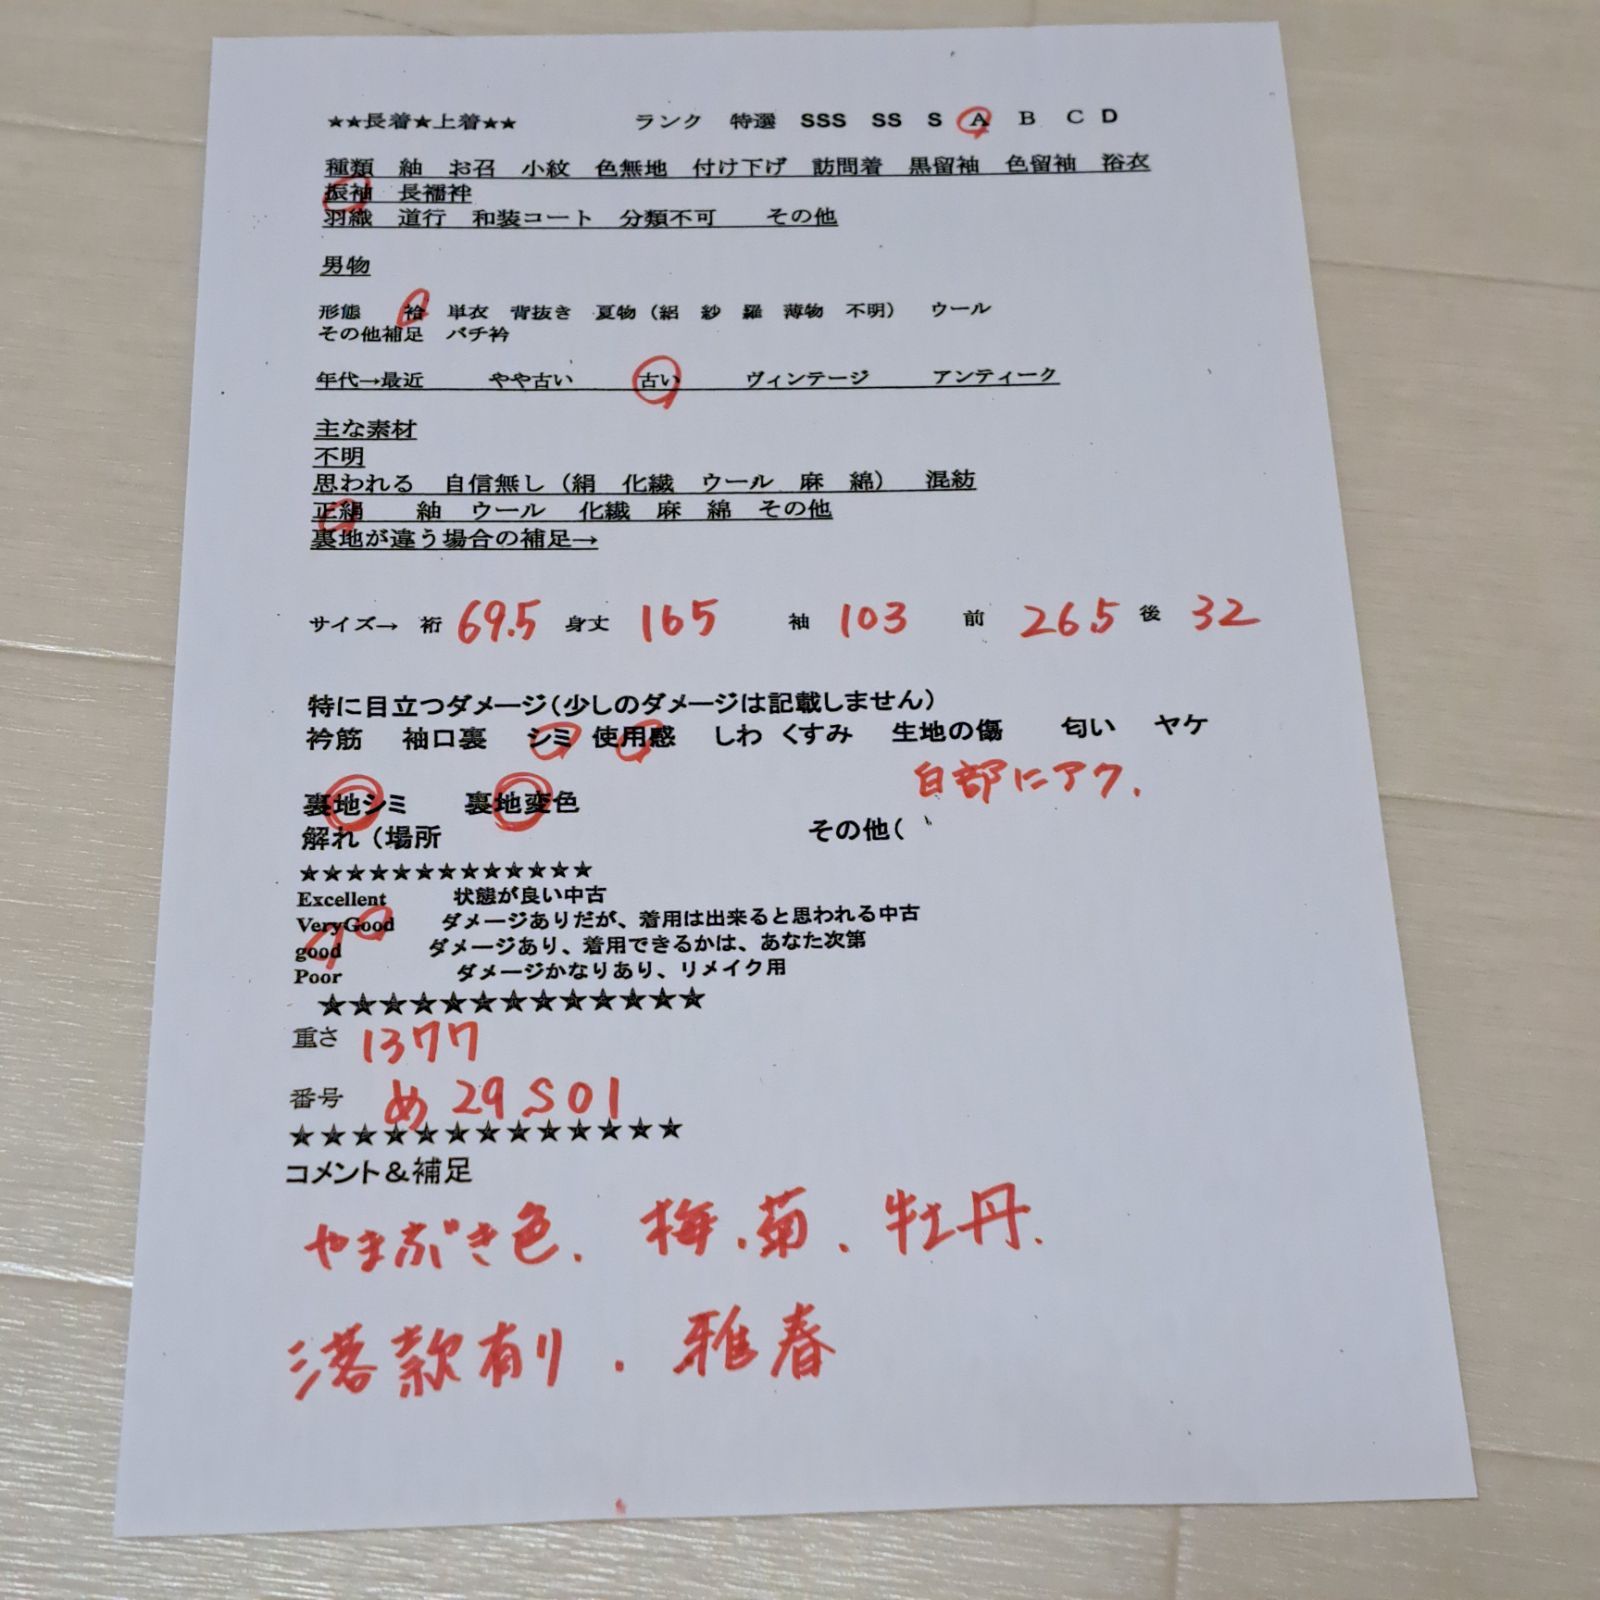 ★★長着★上着★★　ランク　特選　SSS　SS　S　A　B　C　D
種類　紬　お召　小紋　色無地　付け下げ　訪問着　黒留袖　色留袖　浴衣
振袖　長襦袢
羽織　道行　和装コート　分類不可　その他
男物
形態　袷　単衣　背抜き　夏物（絽　紗　羅　薄物　不明）　ウール
その他補足　バチ衿
年代→最近　やや古い　古い　ヴィンテージ　アンティーク
主な素材
不明
思われる　自信無し（絹　化繊　ウール　麻　綿）　混紡
正絹　紬　ウール　化繊　麻　綿　その他
裏地が違う場合の補足→
サイズ→　裄　69.5　身丈　165　袖　103　前　26.5　後　32
特に目立つダメージ（少しのダメージは記載しません）
衿筋　袖口裏　シミ　使用感　しわ　くすみ　生地の傷　匂い　ヤケ
白部にアク.
裏地シミ　裏地変色
解れ（場所　その他（
★★★★★★★★★★★★★
Excellent　状態が良い中古
VeryGood　ダメージありだが、着用は出来ると思われる中古
good　ダメージあり、着用できるかは、あなた次第
Poor　ダメージかなりあり、リメイク用
★★★★★★★★★★★★★
重さ　1377
番号　め29S01
★★★★★★★★★★★★★
コメント＆補足
やまぶき色.　梅.菊.牡丹.
落款有り.雅春